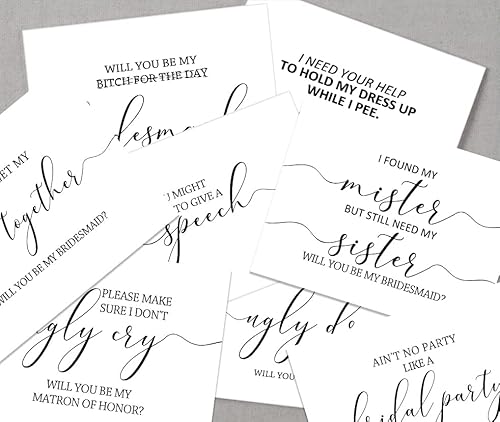 WILL YOU BE MY
BITCH FOR THE DAY
I NEED YOUR HELP
TO HOLD MY DRESS UP
WHILE I PEE.
MY
together
WILL YOU BE MY BRIDESMAID?
MIGHT
TO GIVE A
speech
I FOUND MY
mister
BUT STILL NEED MY
sister
WILL YOU BE MY BRIDESMAID?
PLEASE MAKE
SURE I DON'T
ugly cry
WILL YOU BE MY
MATRON OF HONOR?
ugly
WILL YOU
AIN'T NO PARTY
LIKE A
bridal party